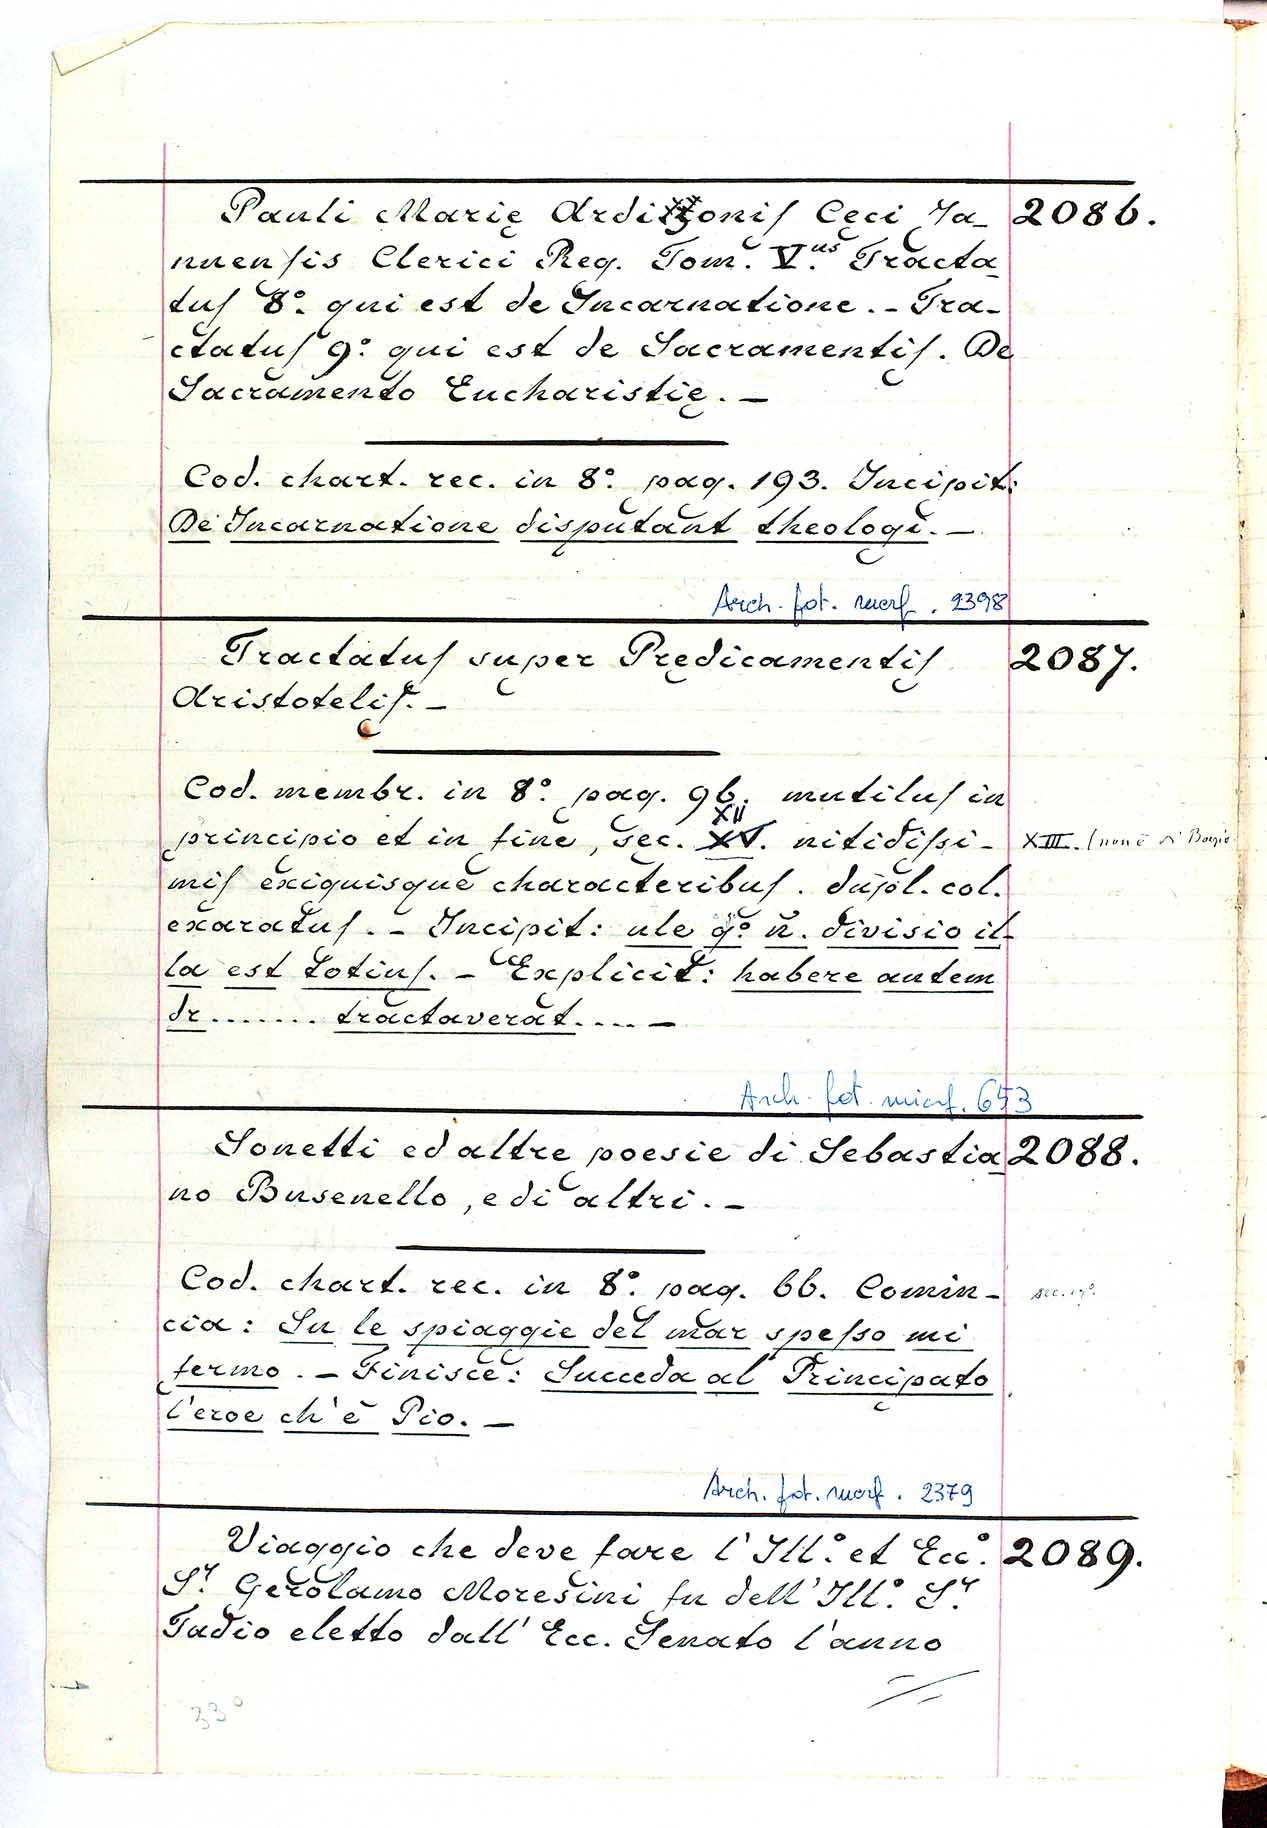 Pauli Marię Ardizzonis Cęci Ja- 2086.
nuensis Clerici Reg. Tom. V.us Tracta
tus 8.º qui est de Incarnatione. - Tra-
ctatus 9.º qui est de Sacramentis. De
Sacramento Eucharistię. -
Cod. chart. rec. in 8.º pag. 193. Incipit:
De Incarnatione disputant theologi. -
Arch. fot. micrf. 2398
Tractatus super Predicamentis 2087.
Aristotelis. -
Cod. membr. in 8.º pag. 96. mutilus in
XII
principio et in fine, sec. XV. nitidissi- XIII. (non è di
mis exiguisque characteribus. dupl. col.
exaratus. - Incipit: ule qº n̄. divisio il-
la est totius. - Explicit: habere autem
dr....... tractaverat.... -
Arch. fot. micrf. 653
Sonetti ed altre poesie di Sebastia 2088.
no Busenello, e di altri. -
Cod. chart. rec. in 8.º pag. 66. Comin- sec. 17º
cia: Su le spiaggie del mar spesso mi
fermo. - Finisce: Succeda al Principato
l'eroe ch'è Pio. -
Arch. fot. micrf. 2379
Viaggio che deve fare l'Ill.º et Ecc.º 2089.
S.r Gerolamo Moresini fu dell'Ill.º S.r
Tadio eletto dall'Ecc. Senato l'anno
33º